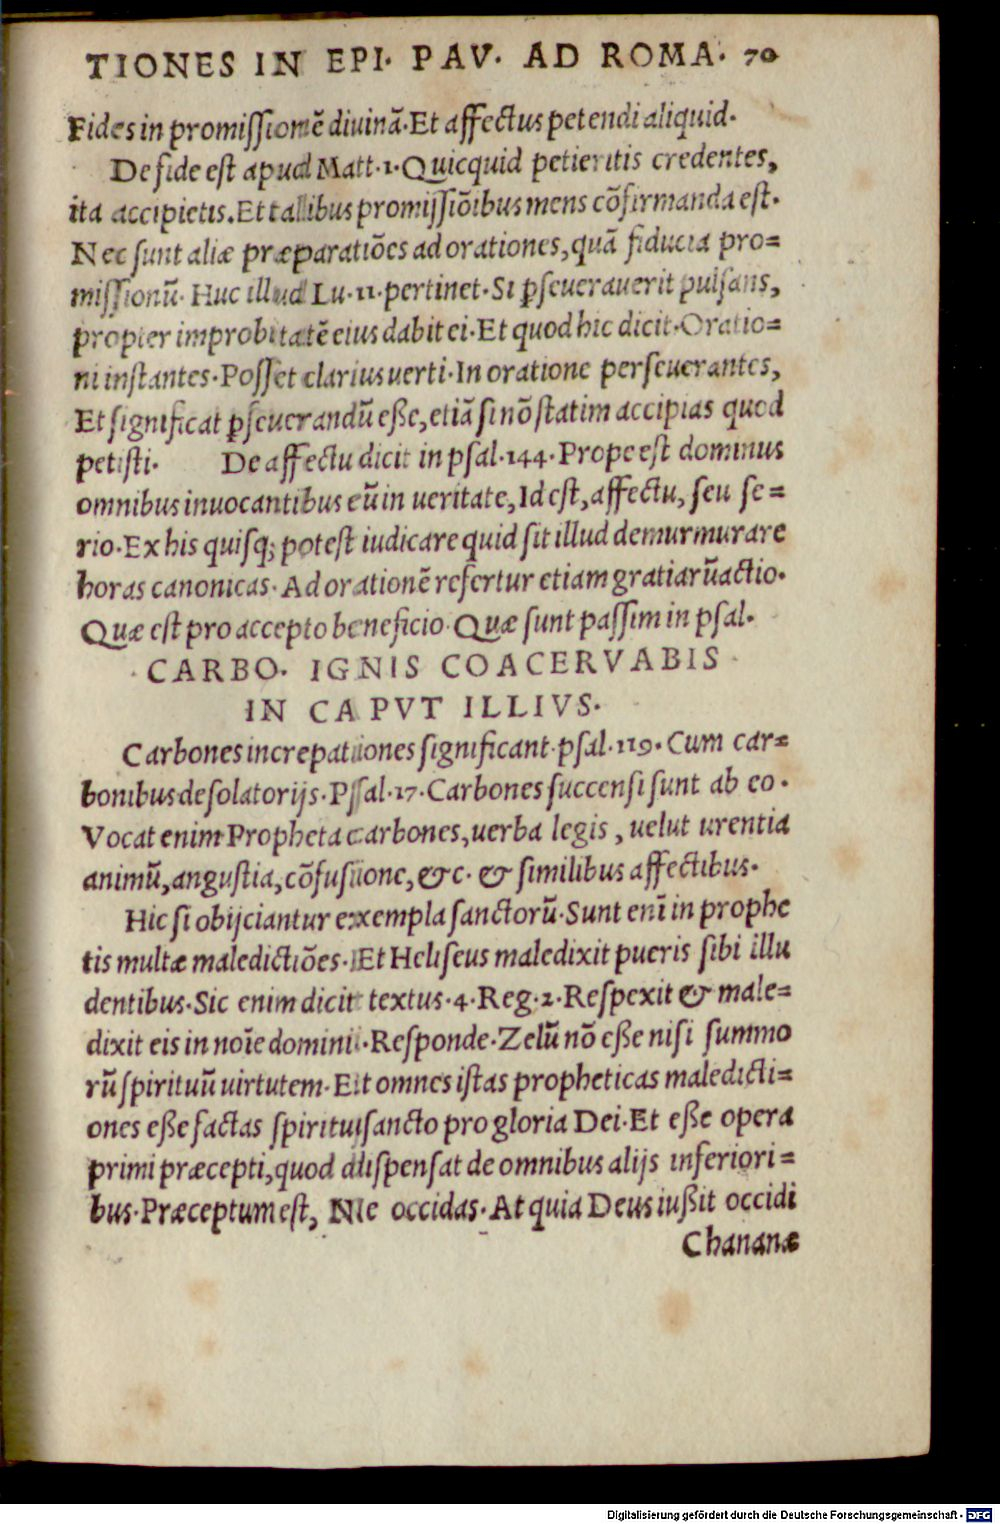 TIONES IN EPI. PAV. AD ROMA. 70
Fides in promissionē diuinā. Et affectus petendi aliquid.
De fide est apud Matt. 1. Quicquid petieritis credentes,
ita accipietis. Et talibus promissiōibus mens cōfirmanda est.
Nec sunt aliæ præparatiōes ad orationes, quā fiducia pro=
missionū. Huc illud Lu. 11. pertinet. Si ꝑseuerauerit pulsans,
propter improbitatē eius dabit ei. Et quod hic dicit. Oratio=
ni instantes. Posset clarius uerti. In oratione perseuerantes,
Et significat ꝑseuerandū eße, etiā si nō statim accipias quod
petisti. De affectu dicit in psal. 144. Prope est dominus
omnibus inuocantibus eū in ueritate, Id est, affectu, seu se=
rio. Ex his quisq; potest iudicare quid sit illud demurmurare
horas canonicas. Ad orationē refertur etiam gratiarū actio.
Quæ est pro accepto beneficio. Quæ sunt passim in psal.
CARBO. IGNIS COACERVABIS
IN CAPVT ILLIVS.
Carbones increpationes significant. psal. 119. Cum car=
bonibus desolatorijs. Psal. 17. Carbones succensi sunt ab eo.
Vocat enim Propheta carbones, uerba legis, uelut urentia
animū, angustia, cōfusione, &c. & similibus affectibus.
Hic si obijciantur exempla sanctorū. Sunt enī in prophe
tis multæ maledictiōes. Et Heliseus maledixit pueris sibi illu
dentibus. Sic enim dicit textus. 4. Reg. 2. Respexit & male=
dixit eis in noīe domini. Responde. Zelū nō eße nisi summo
rū spirituū uirtutem. Et omnes istas propheticas maledicti=
ones eße factas spiritu sancto pro gloria Dei. Et eße opera
primi præcepti, quod dispensat de omnibus alijs inferiori=
bus. Præceptum est, Ne occidas. At quia Deus iußit occidi
Chananæ
Digitalisierung gefördert durch die Deutsche Forschungsgemeinschaft - DFG